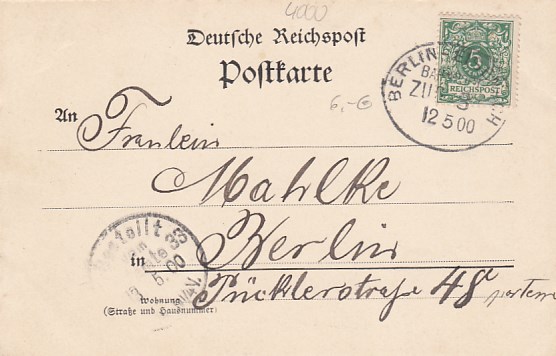 4000
Deutsche Reichspost
Postkarte
5
REICHSPOST
BERLIN
ZUG
12 5 00
6,-
An Fräulein
Mahlke
in Berlin
Pücklerstraße 48 parterre
Bestellt
5.00
Wohnung
(Straße und Hausnummer)